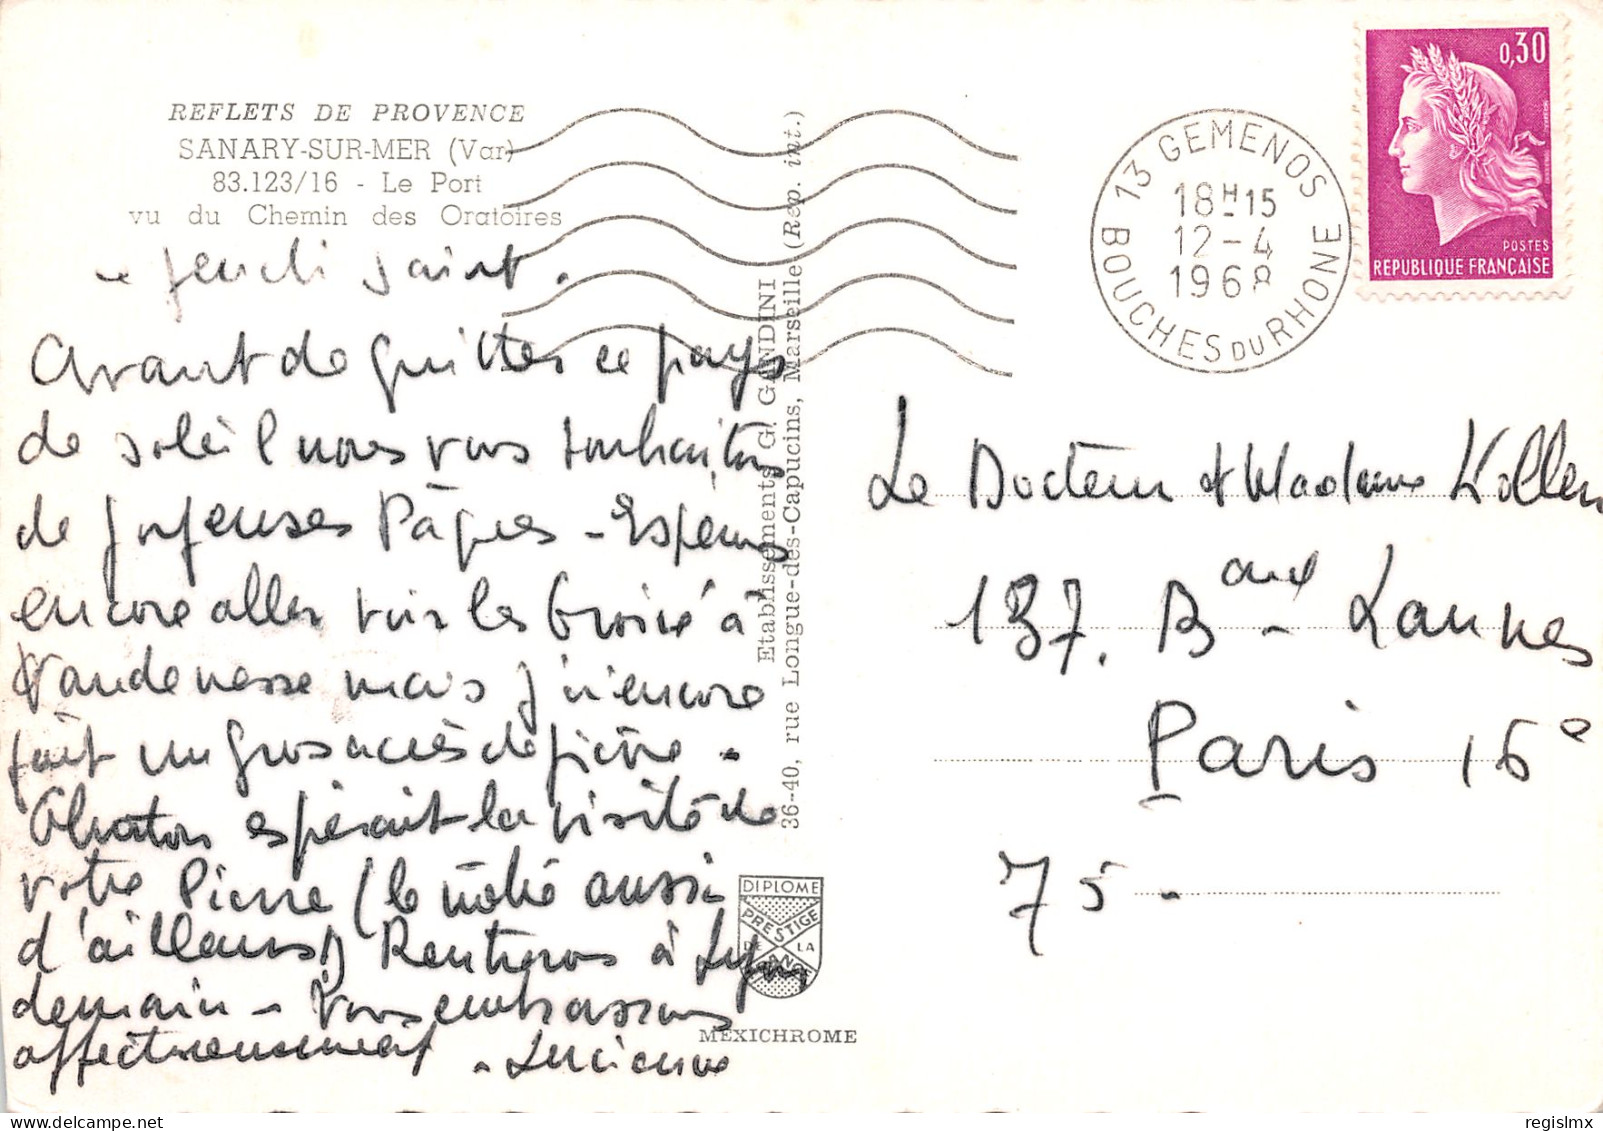 REFLETS DE PROVENCE
SANARY-SUR-MER (Var)
83.123/16 - Le Port
vu du Chemin des Oratoires
- Jeudi saint.
Avant de quitter ce pays
de soleil nous vous souhaitons
de joyeuses Pâques - Espérions
encore aller voir les à
Vandenesse mais j'ai encore
fait un gros accès de fièvre -
espérait la visite de
votre Pierre (le nôtre aussi
d'ailleurs) Rentrons à Lyon
demain - Vous embrassons
affectueusement - Lucienne
Etablissements G. GANDINI
36-40, rue Longue-des-Capucins, Marseille (Rep. int.)
DIPLOME
PRESTIGE
DE LA
FRANCE
MEXICHROME
13 GEMENOS
18H15
12-4
1968
BOUCHES DU RHONE
0,30
POSTES
REPUBLIQUE FRANÇAISE
Le Docteur et Madame
137. Bard Lannes
Paris 16e
75 -
regislmx